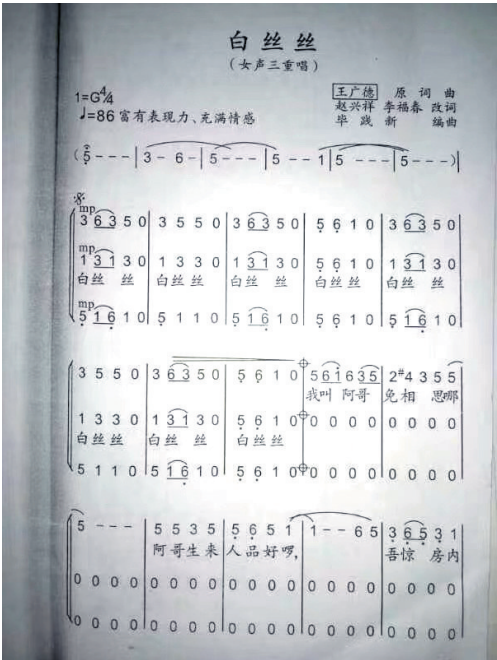 白丝丝
(女声三重唱)
1=G4/4
♩=86 富有表现力、充满情感
王广德 原词曲
赵兴祥 李福春 改词
毕践新 编曲
(5 - - - | 3 - 6 - | 5 - - - | 5 - - 1 | 5 - - - | 5 - - - )|
mp
3 6 3 5 0 | 3 5 5 0 | 3 6 3 5 0 | 5 6 1 0 | 3 6 3 5 0
mp
1 3 1 3 0 | 1 3 3 0 | 1 3 1 3 0 | 5 6 1 0 | 1 3 1 3 0
白丝 丝 白丝丝 白丝 丝 白丝丝 白丝 丝
mp
5 1 6 1 0 | 5 1 1 0 | 5 1 6 1 0 | 5 6 1 0 | 5 1 6 1 0
3 5 5 0 | 3 6 3 5 0 | 5 6 1 0 | 5 6 1 6 3 5 | 2 #4 3 5 5
我叫 阿哥 免相 思哪
1 3 3 0 | 1 3 1 3 0 | 5 6 1 0 | 0 0 0 0 | 0 0 0 0
白丝丝 白丝 丝 白丝丝
5 1 1 0 | 5 1 6 1 0 | 5 6 1 0 | 0 0 0 0 | 0 0 0 0
5 - - - | 5 5 3 5 | 5 6 5 1 | 1 - - 6 5 | 3 6 5 3 1
阿哥生来 人品好啰, 吾惊 房内
0 0 0 0 | 0 0 0 0 | 0 0 0 0 | 0 0 0 0 | 0 0 0 0
0 0 0 0 | 0 0 0 0 | 0 0 0 0 | 0 0 0 0 | 0 0 0 0